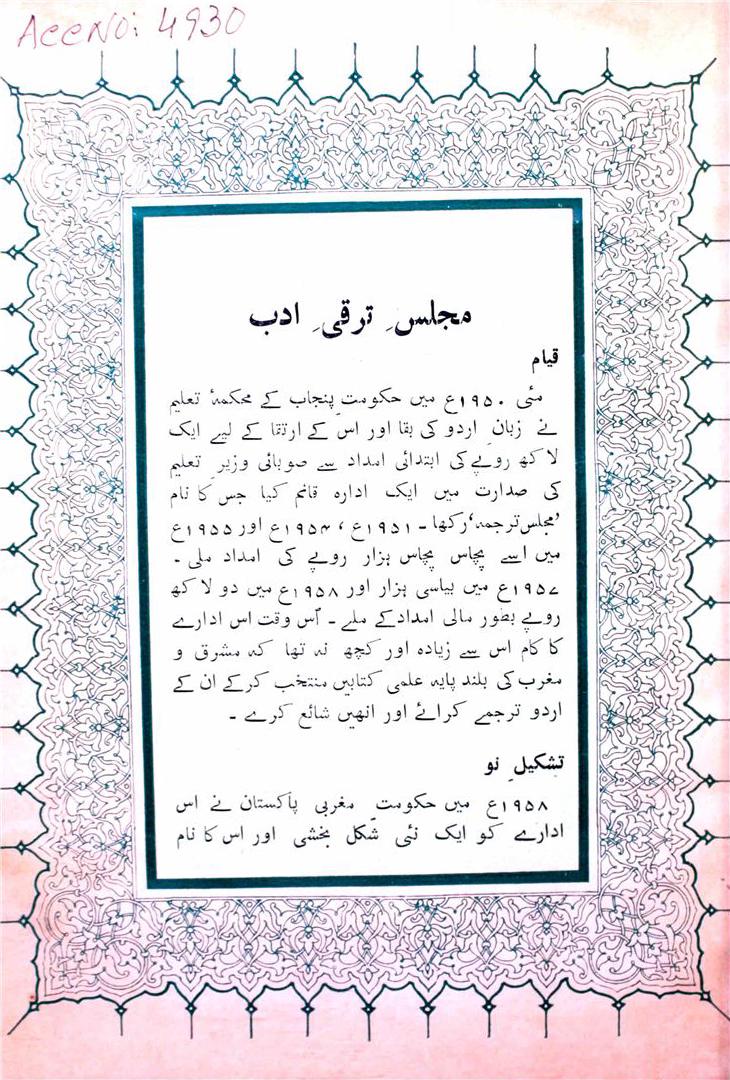 Acc No: 4930
مجلسِ ترقیِ ادب
قیام
مئی ۱۹۵۰ع میں حکومتِ پنجاب کے محکمۂ تعلیم
نے زبانِ اردو کی بقا اور اس کے ارتقا کے لیے ایک
لاکھ روپے کی ابتدائی امداد سے صوبائی وزیرِ تعلیم
کی صدارت میں ایک ادارہ قائم کیا جس کا نام
’مجلس ترجمہ‘ رکھا ۔ ۱۹۵۱ع ، ۱۹۵۴ع اور ۱۹۵۵ع
میں اسے پچاس پچاس ہزار روپے کی امداد ملی ۔
۱۹۵۷ع میں بیاسی ہزار اور ۱۹۵۸ع میں دو لاکھ
روپے بطور مالی امداد کے ملے ۔ اُس وقت اس ادارے
کا کام اس سے زیادہ اور کچھ نہ تھا کہ مشرق و
مغرب کی بلند پایہ علمی کتابیں منتخب کرکے ان کے
اردو ترجمے کرائے اور انھیں شائع کرے ۔
تشکیلِ نو
۱۹۵۸ع میں حکومتِ مغربی پاکستان نے اس
ادارے کو ایک نئی شکل بخشی اور اس کا نام